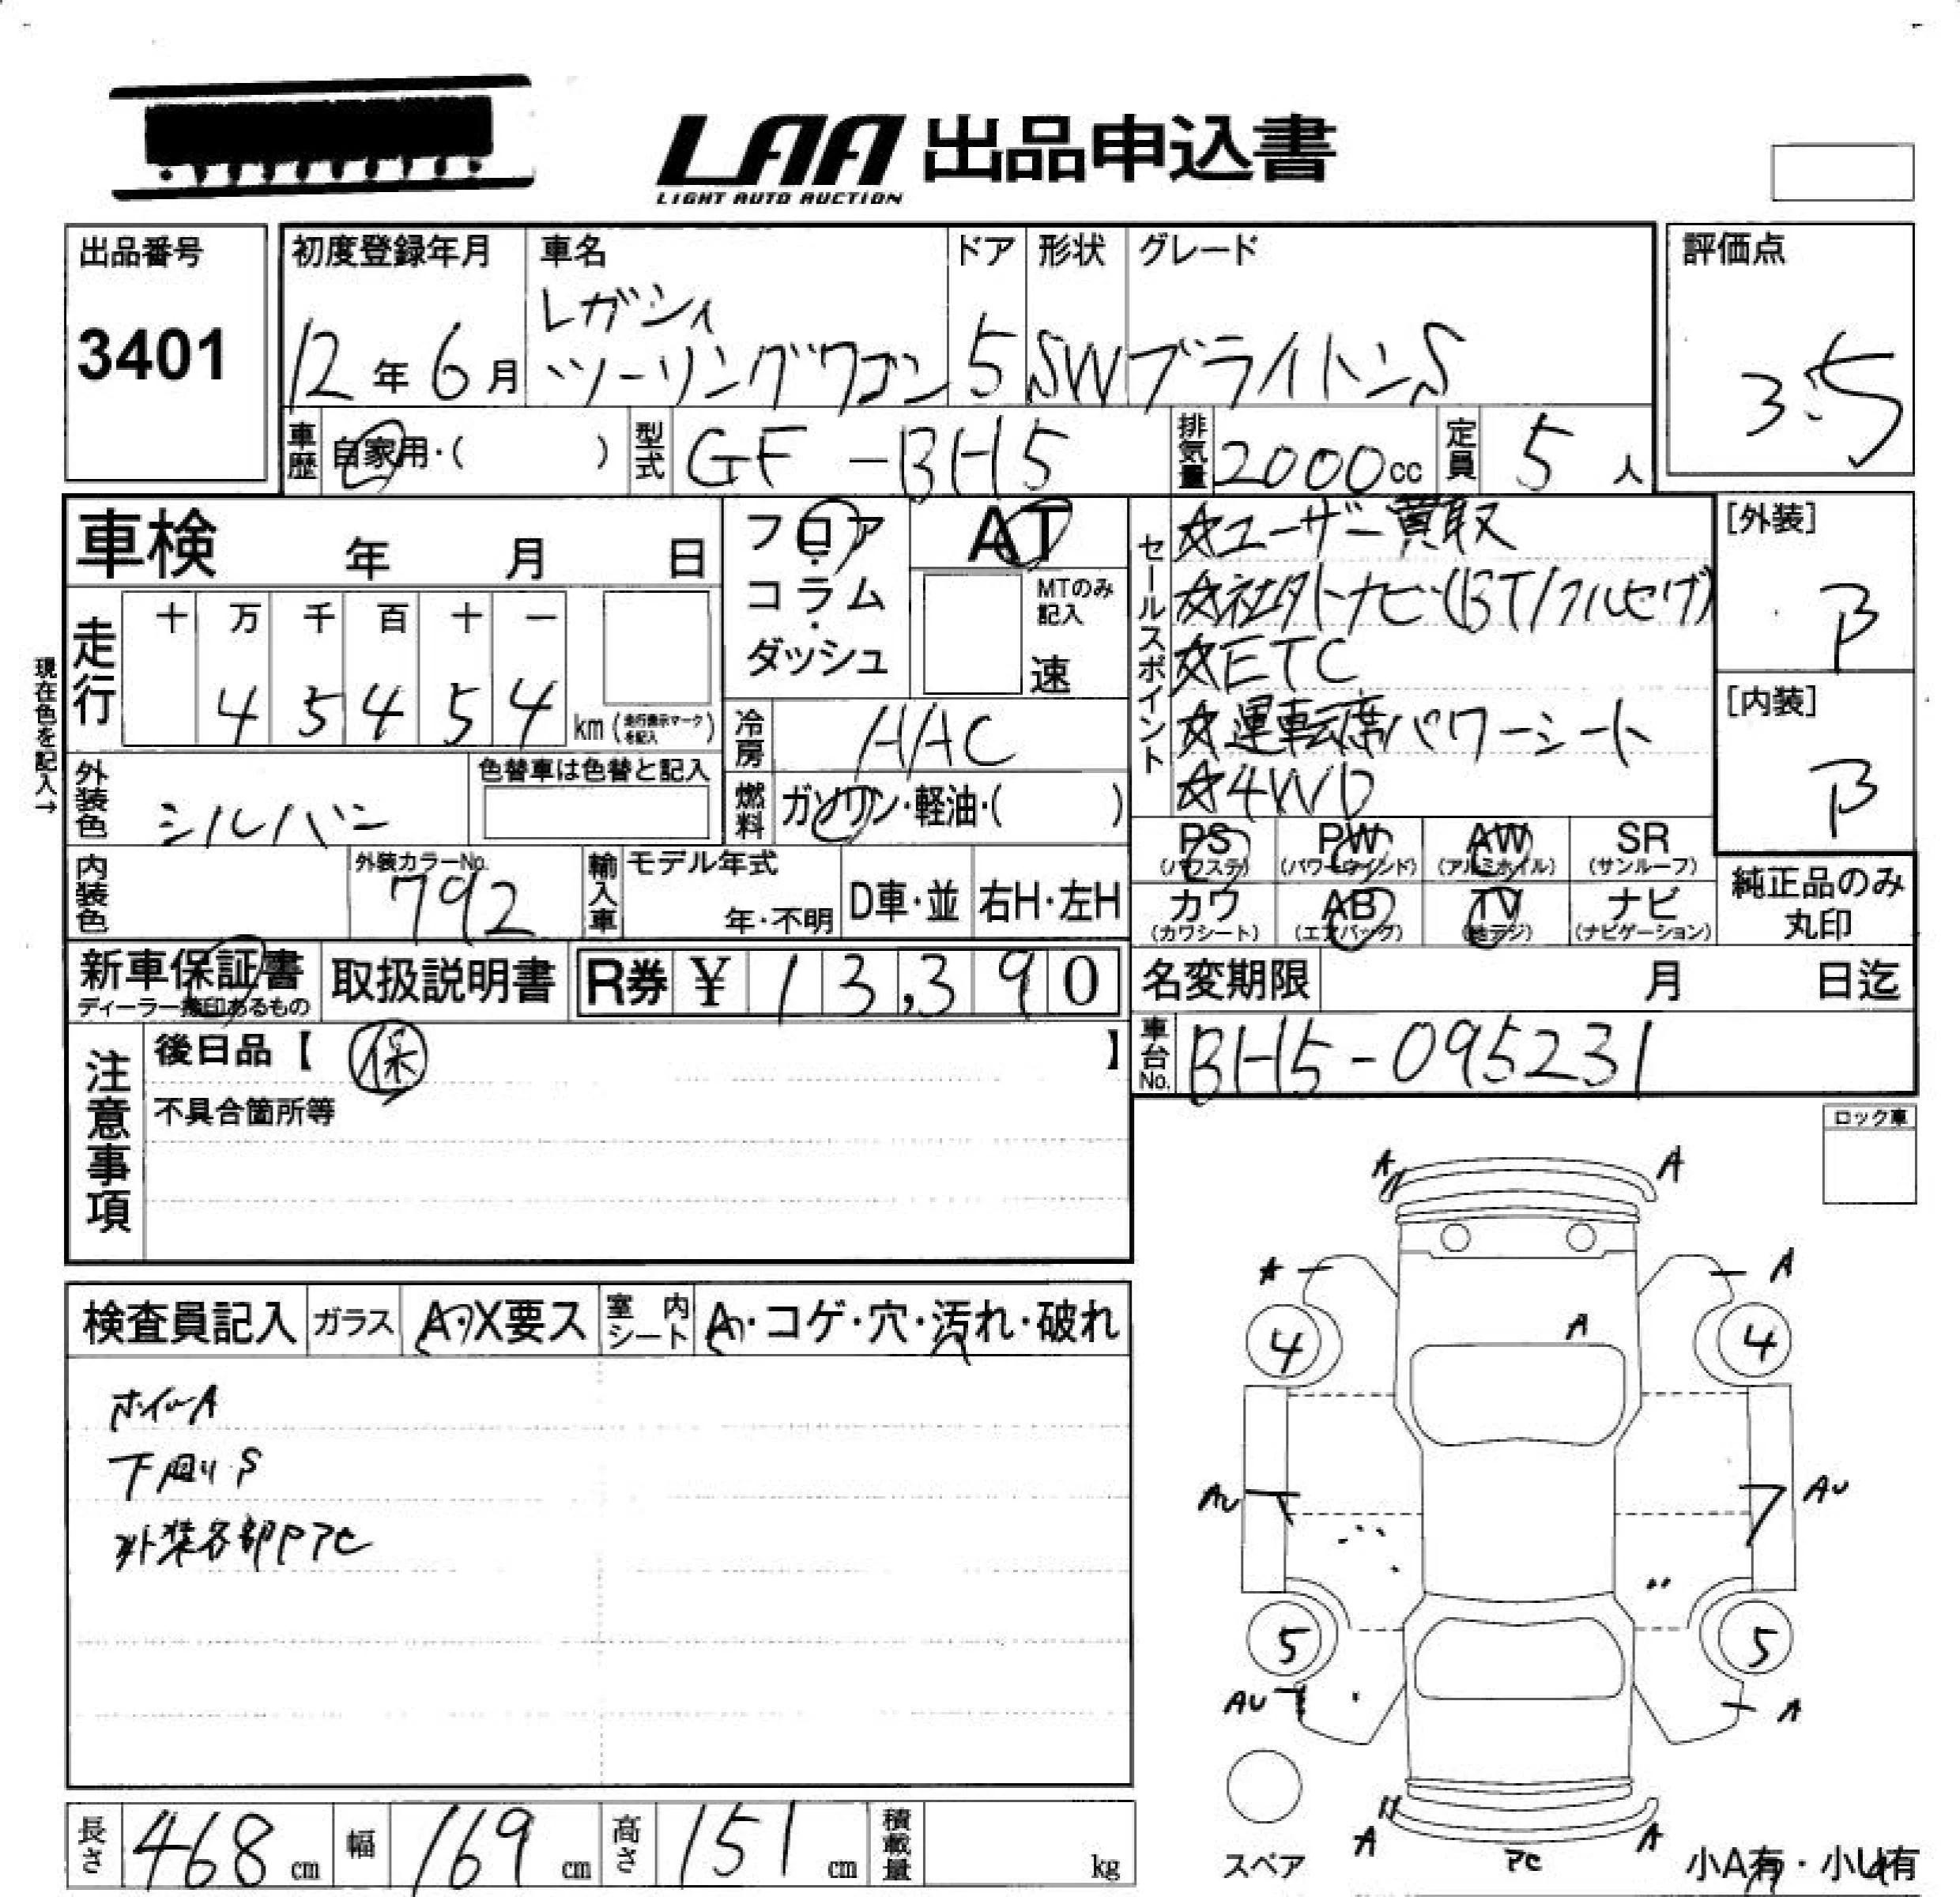 LAA 出品申込書
LIGHT AUTO AUCTION
出品番号
3401
初度登録年月
12年6月
車名
レガシィ
ツーリングワゴン
ドア
5
形状
SW
グレード
ブライトンS
評価点
3.5
車歴
自家用・( )
型式
GF-BH5
排気量
2000cc
定員
5人
車検 年 月 日
フロア・
コラム・
ダッシュ
AT
MTのみ
記入
速
セールスポイント
☆ユーザー買取
☆社外ナビ(BT/フルセグ)
☆ETC
☆運転席パワーシート
☆4WD
[外装]
B
[内装]
B
現在色を記入→
走行
十 万 千 百 十 一
4 5 4 5 4
km (走行表示マークを記入)
冷房
AAC
外装色
シルバー
色替車は色替と記入
燃料
ガソリン・軽油・( )
PS (パワステ)
PW (パワーウインド)
AW (アルミホイル)
SR (サンルーフ)
内装色
外装カラーNo.
792
輸入車
モデル年式
年・不明
D車・並
右H・左H
カワ (カワシート)
AB (エアバッグ)
TV (地デジ)
ナビ (ナビゲーション)
純正品のみ
丸印
新車保証書
ディーラー捺印あるもの
取扱説明書
R券 ¥ 13,390
名変期限 月 日迄
注意事項
後日品【 保 】
不具合箇所等
車台No.
BH5-095231
ロック車
検査員記入
ガラス
A・X要ス
室内シート
A・コゲ・穴・汚れ・破れ
ホイールA
下回りS
外装各部PアE
A A
A A
4 A 4
AU AU
5 5
AU A
A A
スペア
小A有・小U有
長さ
468cm
幅
169cm
高さ
151cm
積載量
kg